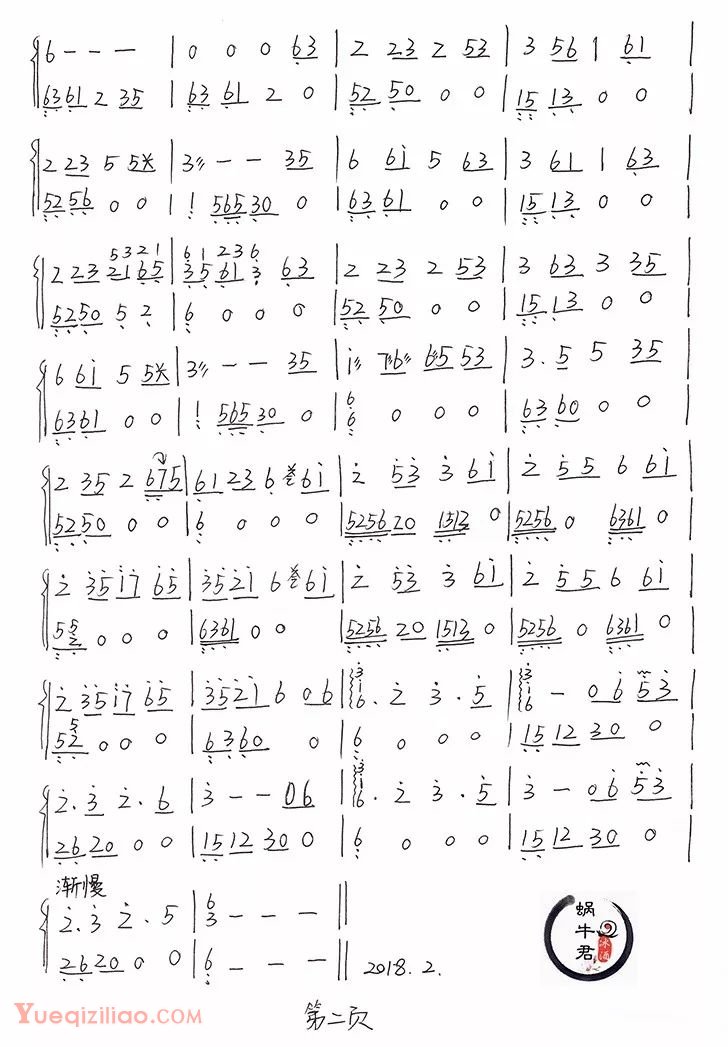 6 - - - | 0 0 0 63 | 2 23 2 53 | 3 56 1 61 |
6361 2 35 | 63 61 2 0 | 52 50 0 0 | 15 13 0 0 |
2 23 5 5 | 3 - - 35 | 6 6i 5 63 | 3 61 1 63 |
52 56 0 0 | 1 565 30 0 | 63 61 0 0 | 15 13 0 0 |
5 3 2 1 | 6 1 2 3 6
2 23 21 65 | 35 61 3 63 | 2 23 2 53 | 3 63 3 35 |
5250 5 2 | 6 0 0 0 | 52 50 0 0 | 15 13 0 0 |
6 6i 5 5 | 3 - - 35 | i 7 6 65 53 | 3. 5 5 35 |
6361 0 0 | 1 565 30 0 | 6 6 0 0 0 | 63 60 0 0 |
2 35 2 675 | 61 23 6 6i | 2 53 3 6i | 2 55 6 6i |
5250 0 0 | 6 0 0 0 | 5256 20 1513 0 | 5256 0 6361 0 |
2 35 i7 65 | 35 21 6 6i | 2 53 3 6i | 2 55 6 6i |
5 5 2 0 0 0 | 6361 0 0 | 5256 20 1513 0 | 5256 0 6361 0 |
2 35 i7 65 | 35 21 6 06 | 3 i 6 . 2 3 . 5 | 3 i 6 - 06 53 |
5 52 0 0 0 | 6360 0 | 6 0 0 0 | 15 12 30 0 |
2. 3 2. 6 | 3 - - 06 | 3 i 6 . 2 3. 5 | 3 - 06 53 |
26 20 0 0 | 15 12 30 0 | 6 0 0 0 | 15 12 30 0 |
渐慢
2. 3 2. 5 | 6 3 - - - ||
26 20 0 0 | 6 - - - || 2018.2.
蜗牛君
第二页
Yueqiziliao.COM